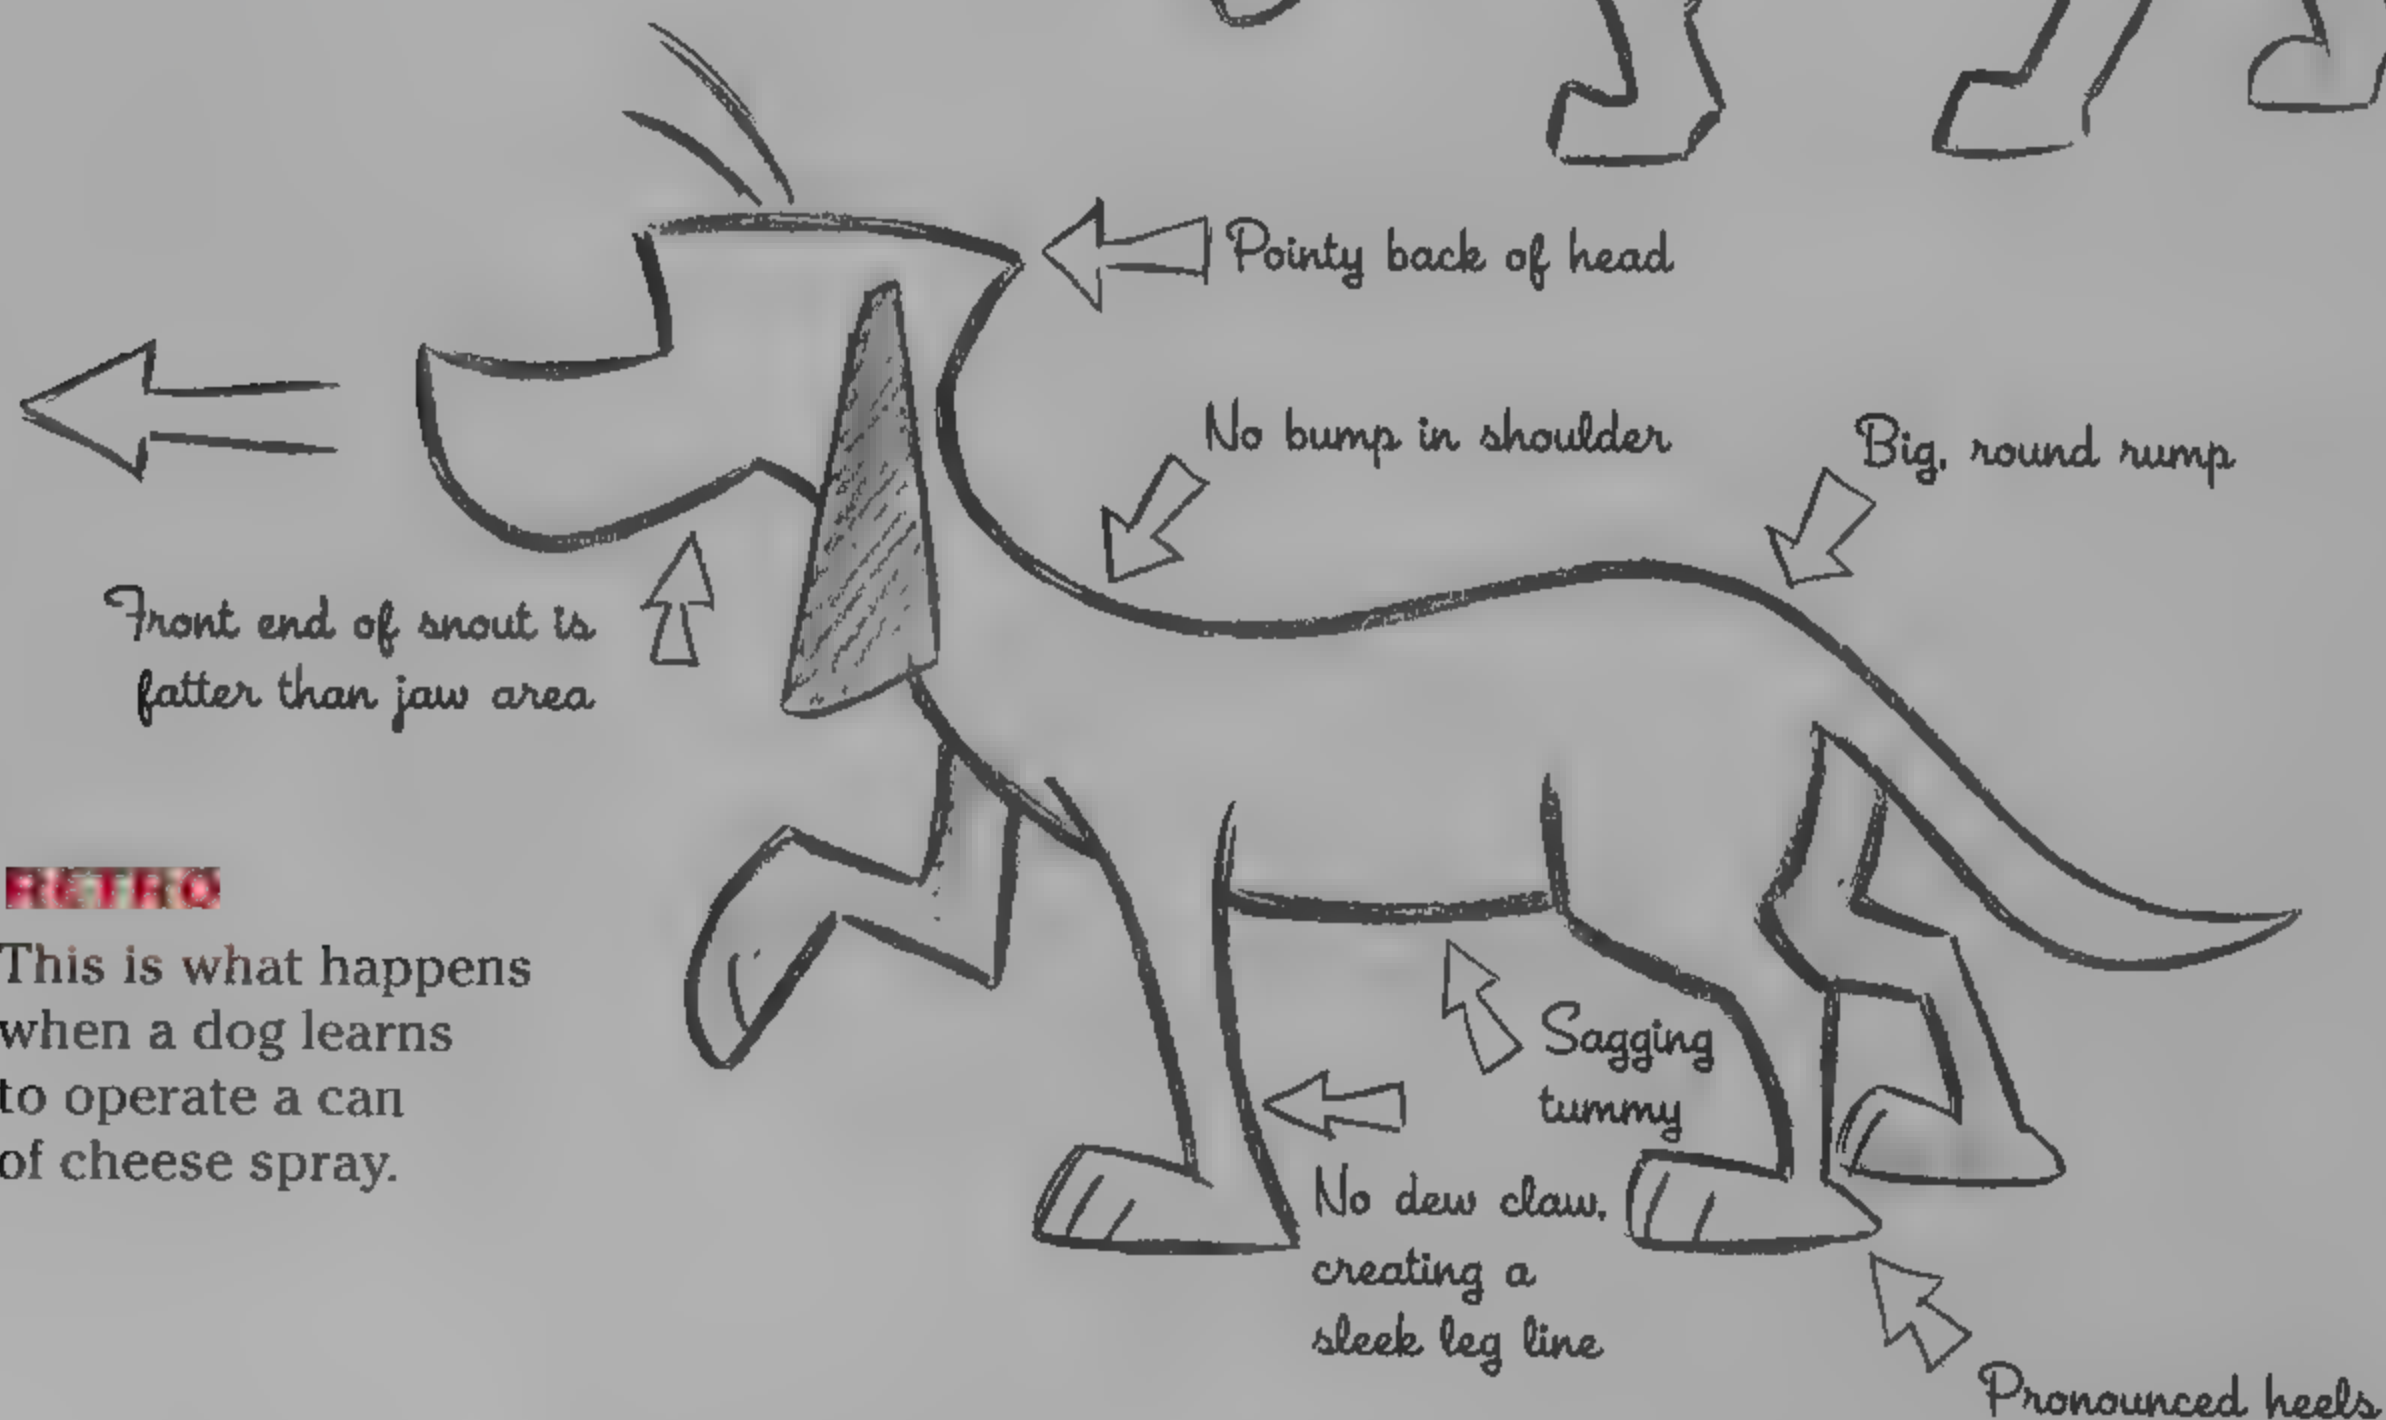 Pointy back of head
No bump in shoulder
Big, round rump
Front end of snout is
fatter than jaw area
RETRO
This is what happens
when a dog learns
to operate a can
of cheese spray.
Sagging
tummy
No dew claw,
creating a
sleek leg line
Pronounced heels